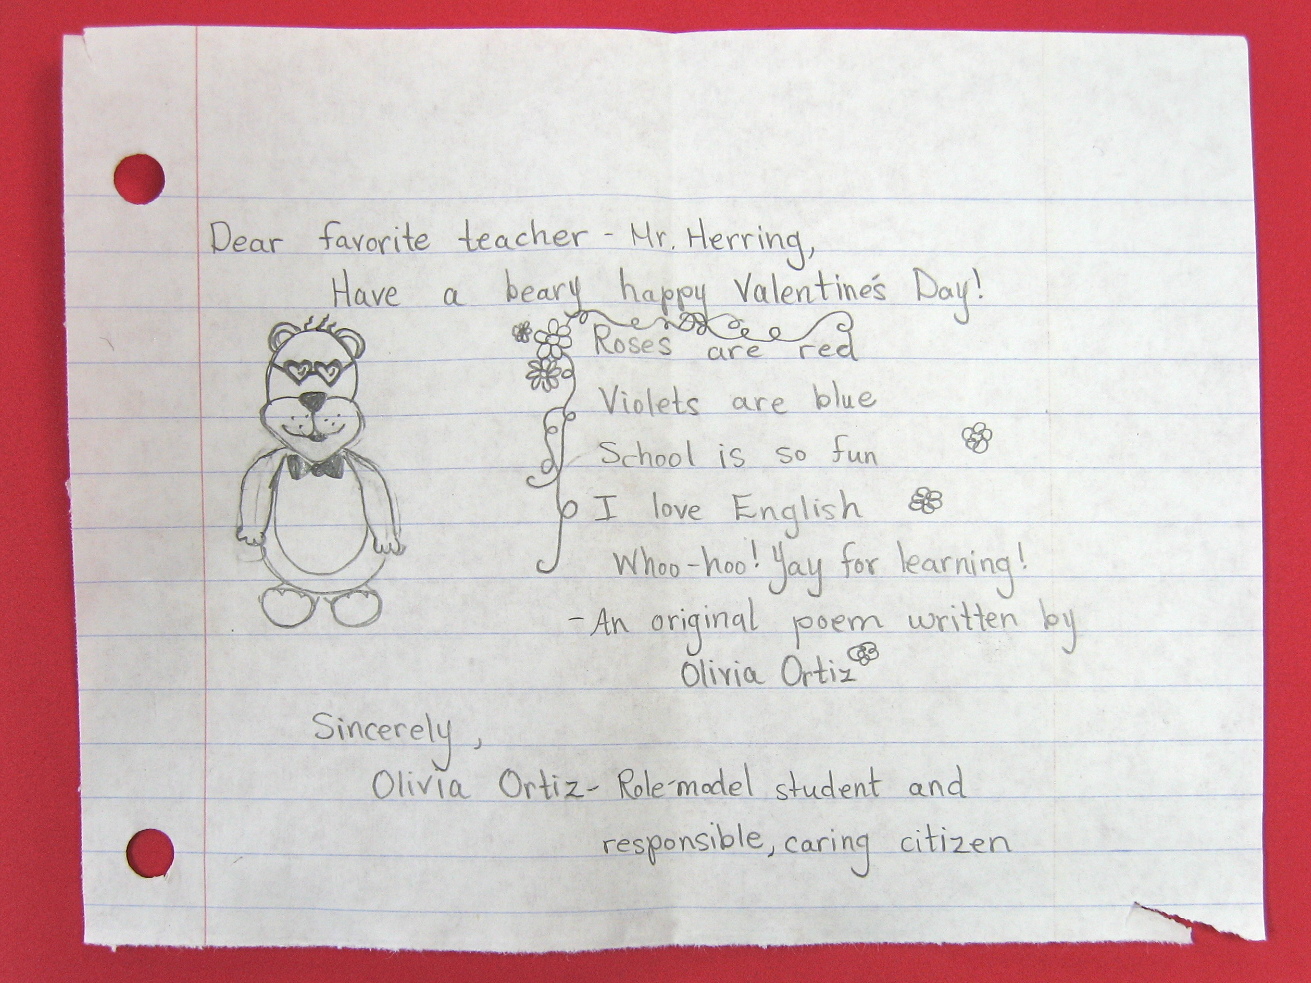 Dear favorite teacher - Mr. Herring,
Have a beary happy Valentine's Day!
Roses are red
Violets are blue
School is so fun
I love English
Whoo-hoo! Yay for learning!
-An original poem written by
Olivia Ortiz
Sincerely,
Olivia Ortiz- Role-model student and
responsible, caring citizen